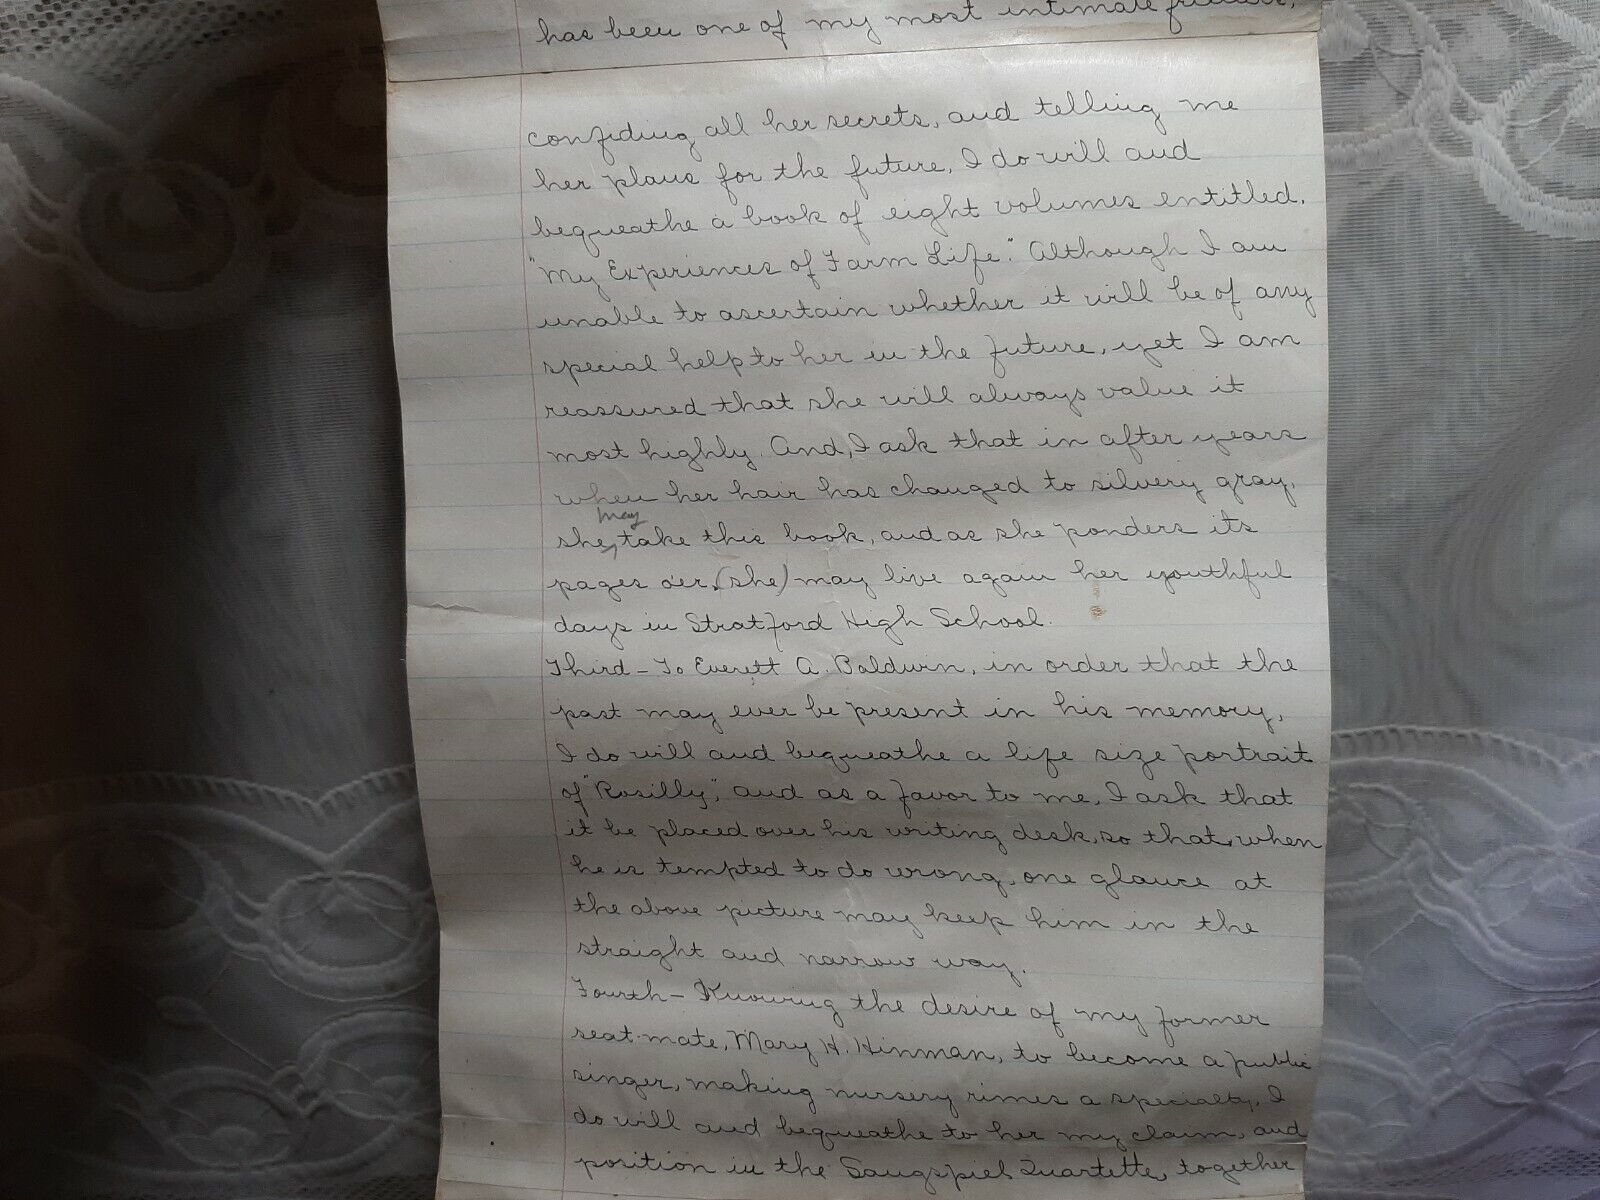 has been one of my most intimate friends,
confiding all her secrets, and telling me
her plans for the future, I do will and
bequeathe a book of eight volumes entitled,
"My Experiences of Farm Life." Although I am
unable to ascertain whether it will be of any
special help to her in the future, yet I am
reassured that she will always value it
most highly. And, I ask that in after years
when her hair has changed to silvery gray,
may
she, take this book, and as she ponders its
pages o'er, (she) may live again her youthful
days in Stratford High School.
Third - To Everett A. Baldwin, in order that the
past may ever be present in his memory,
I do will and bequeathe a life size portrait
of "Rosilly", and as a favor to me, I ask that
it be placed over his writing desk, so that, when
he is tempted to do wrong, one glance at
the above picture may keep him in the
straight and narrow way.
Fourth - Knowing the desire of my former
seat-mate, Mary H. Hinman, to become a public
singer, making nursery rimes a specialty, I
do will and bequeathe to her my claim, and
position in the Saugspiel Quartette, together